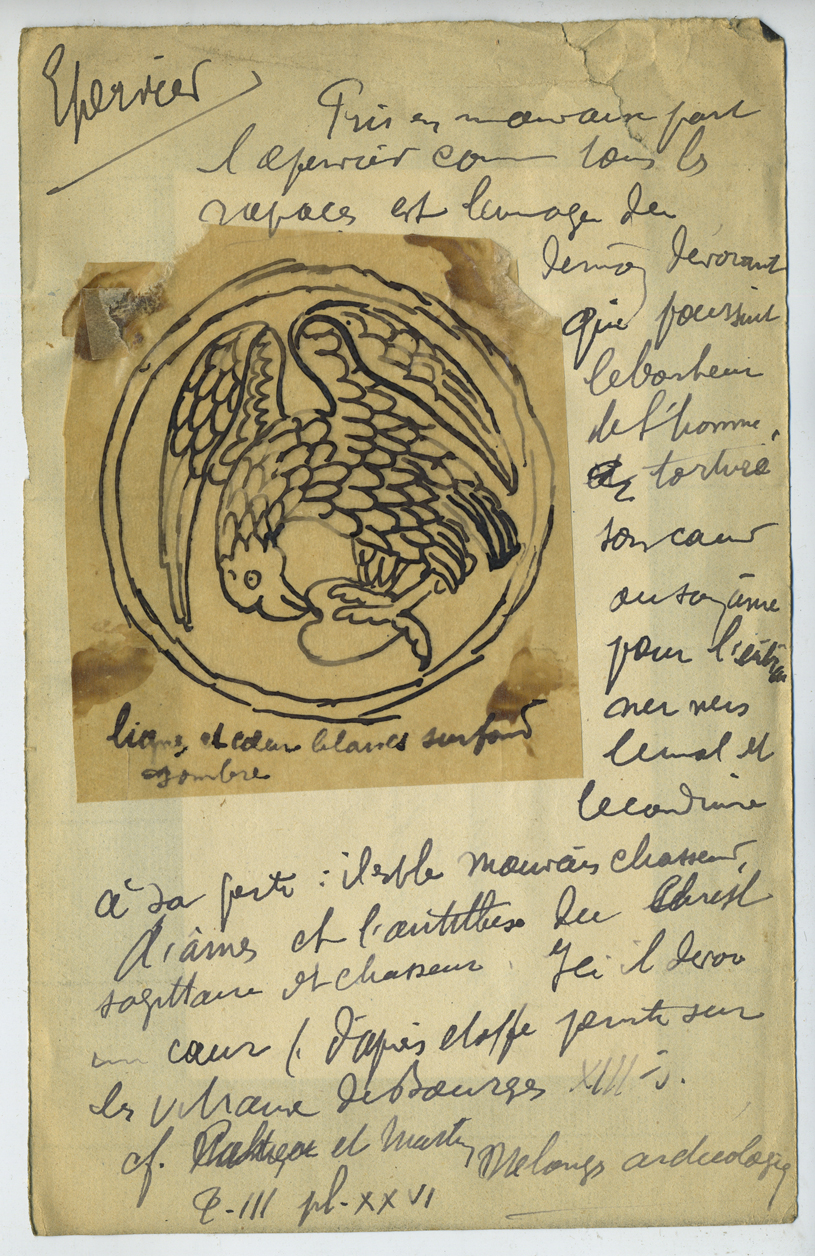 Epervier
Pris en mauvaise part
l'epervier comme tous les
rapaces est l'image du
demon dévorant
qui poursuit
le bonheur
de l'homme,
torture
son cœur
ou son âme
pour l'
ner vers
le mal et
le conduire
à sa perte : il est le mauvais chasseur
d'âmes et l'antithèse du Christ
sagittaire et chasseur. Ici il devore
un cœur (d'après étoffe peinte sur
les vitraux de Bourges XIII s.
cf. et Martin Melanges archeologie
T. III pl. XXVI
lignes et cœur blancs sur fond
sombre